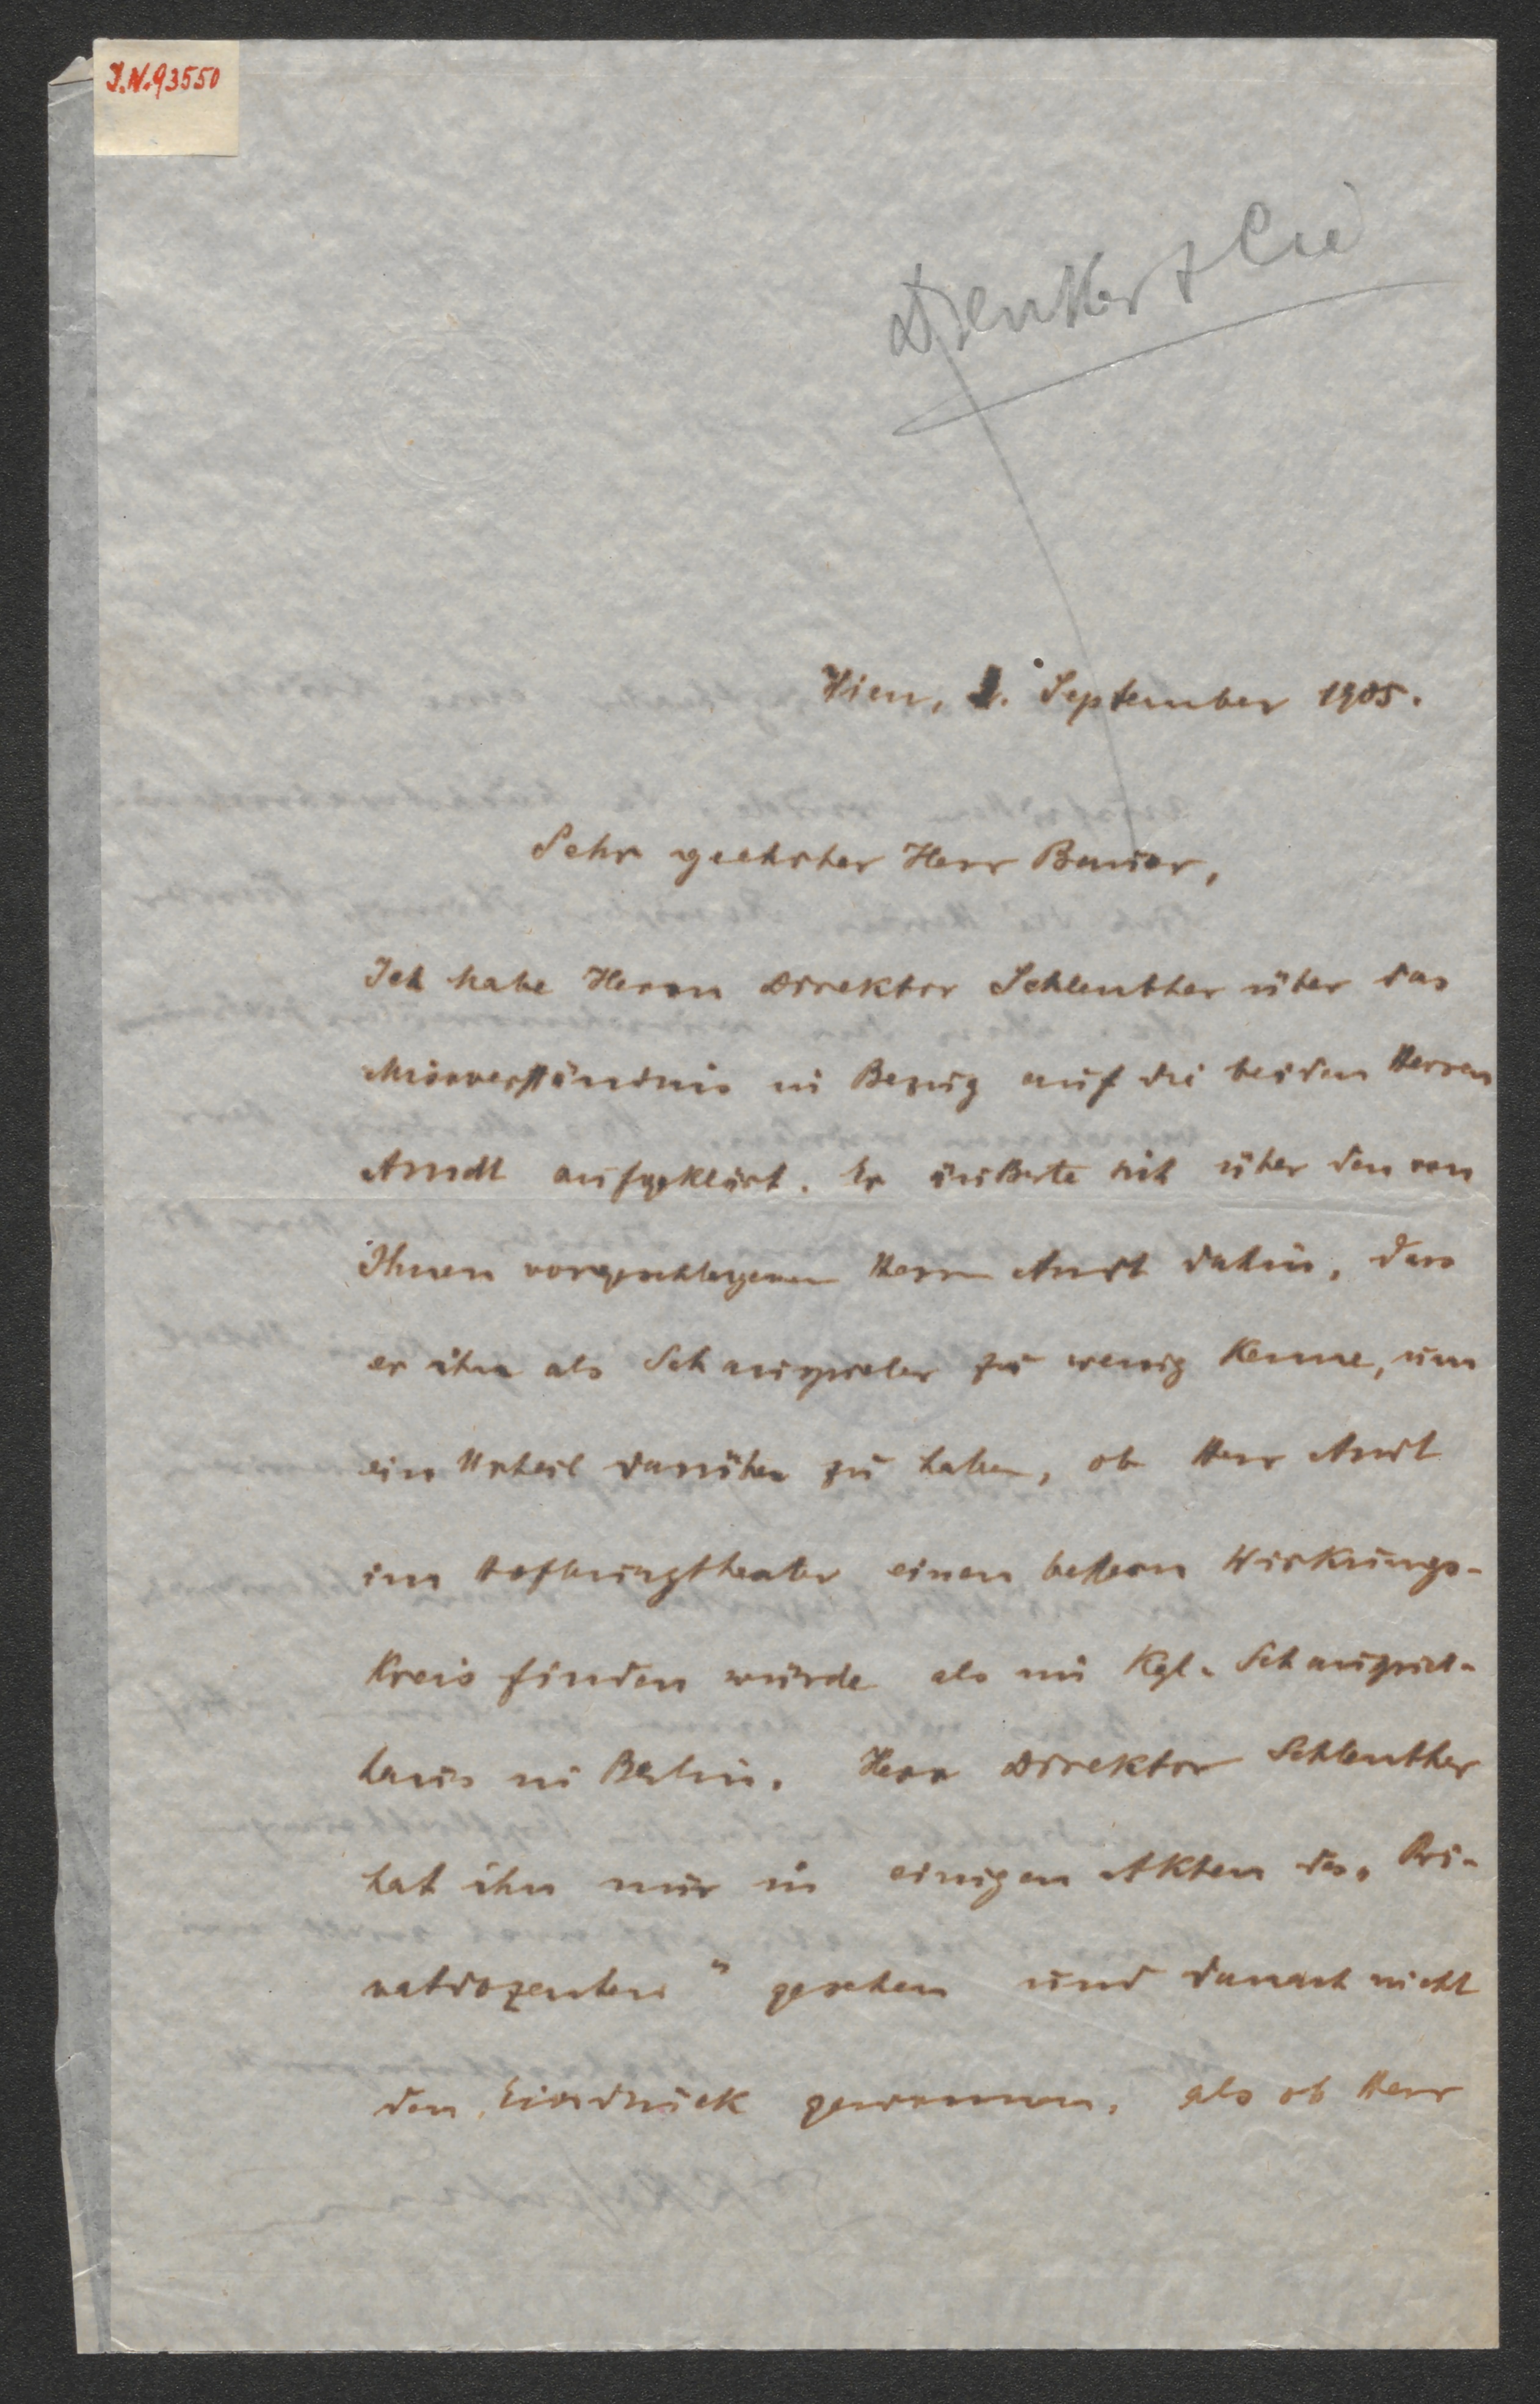 J.N. 93550
Wien, 2. September 1905.
Sehr geehrter Herr Bauer,
Ich habe Herrn Direktor Schlenther über das
Missverständnis in Bezug auf die beiden Herren
Arndt aufgeklärt. Er äußerte sich über den von
Ihnen vorgeschlagenen Herrn Arndt dahin, dass
er ihn als Schauspieler zu wenig kenne, um
ein Urteil darüber zu haben, ob Herr Arndt
im Hofburgtheater einen bessern Wirkungs-
kreis finden würde als im Kgl. Schauspiel-
haus in Berlin. Herr Direktor Schlenther
hat ihn nur in einigen Akten des „Pri-
vatdozenten" gesehen und danach nicht
den Eindruck gewonnen, als ob Herr